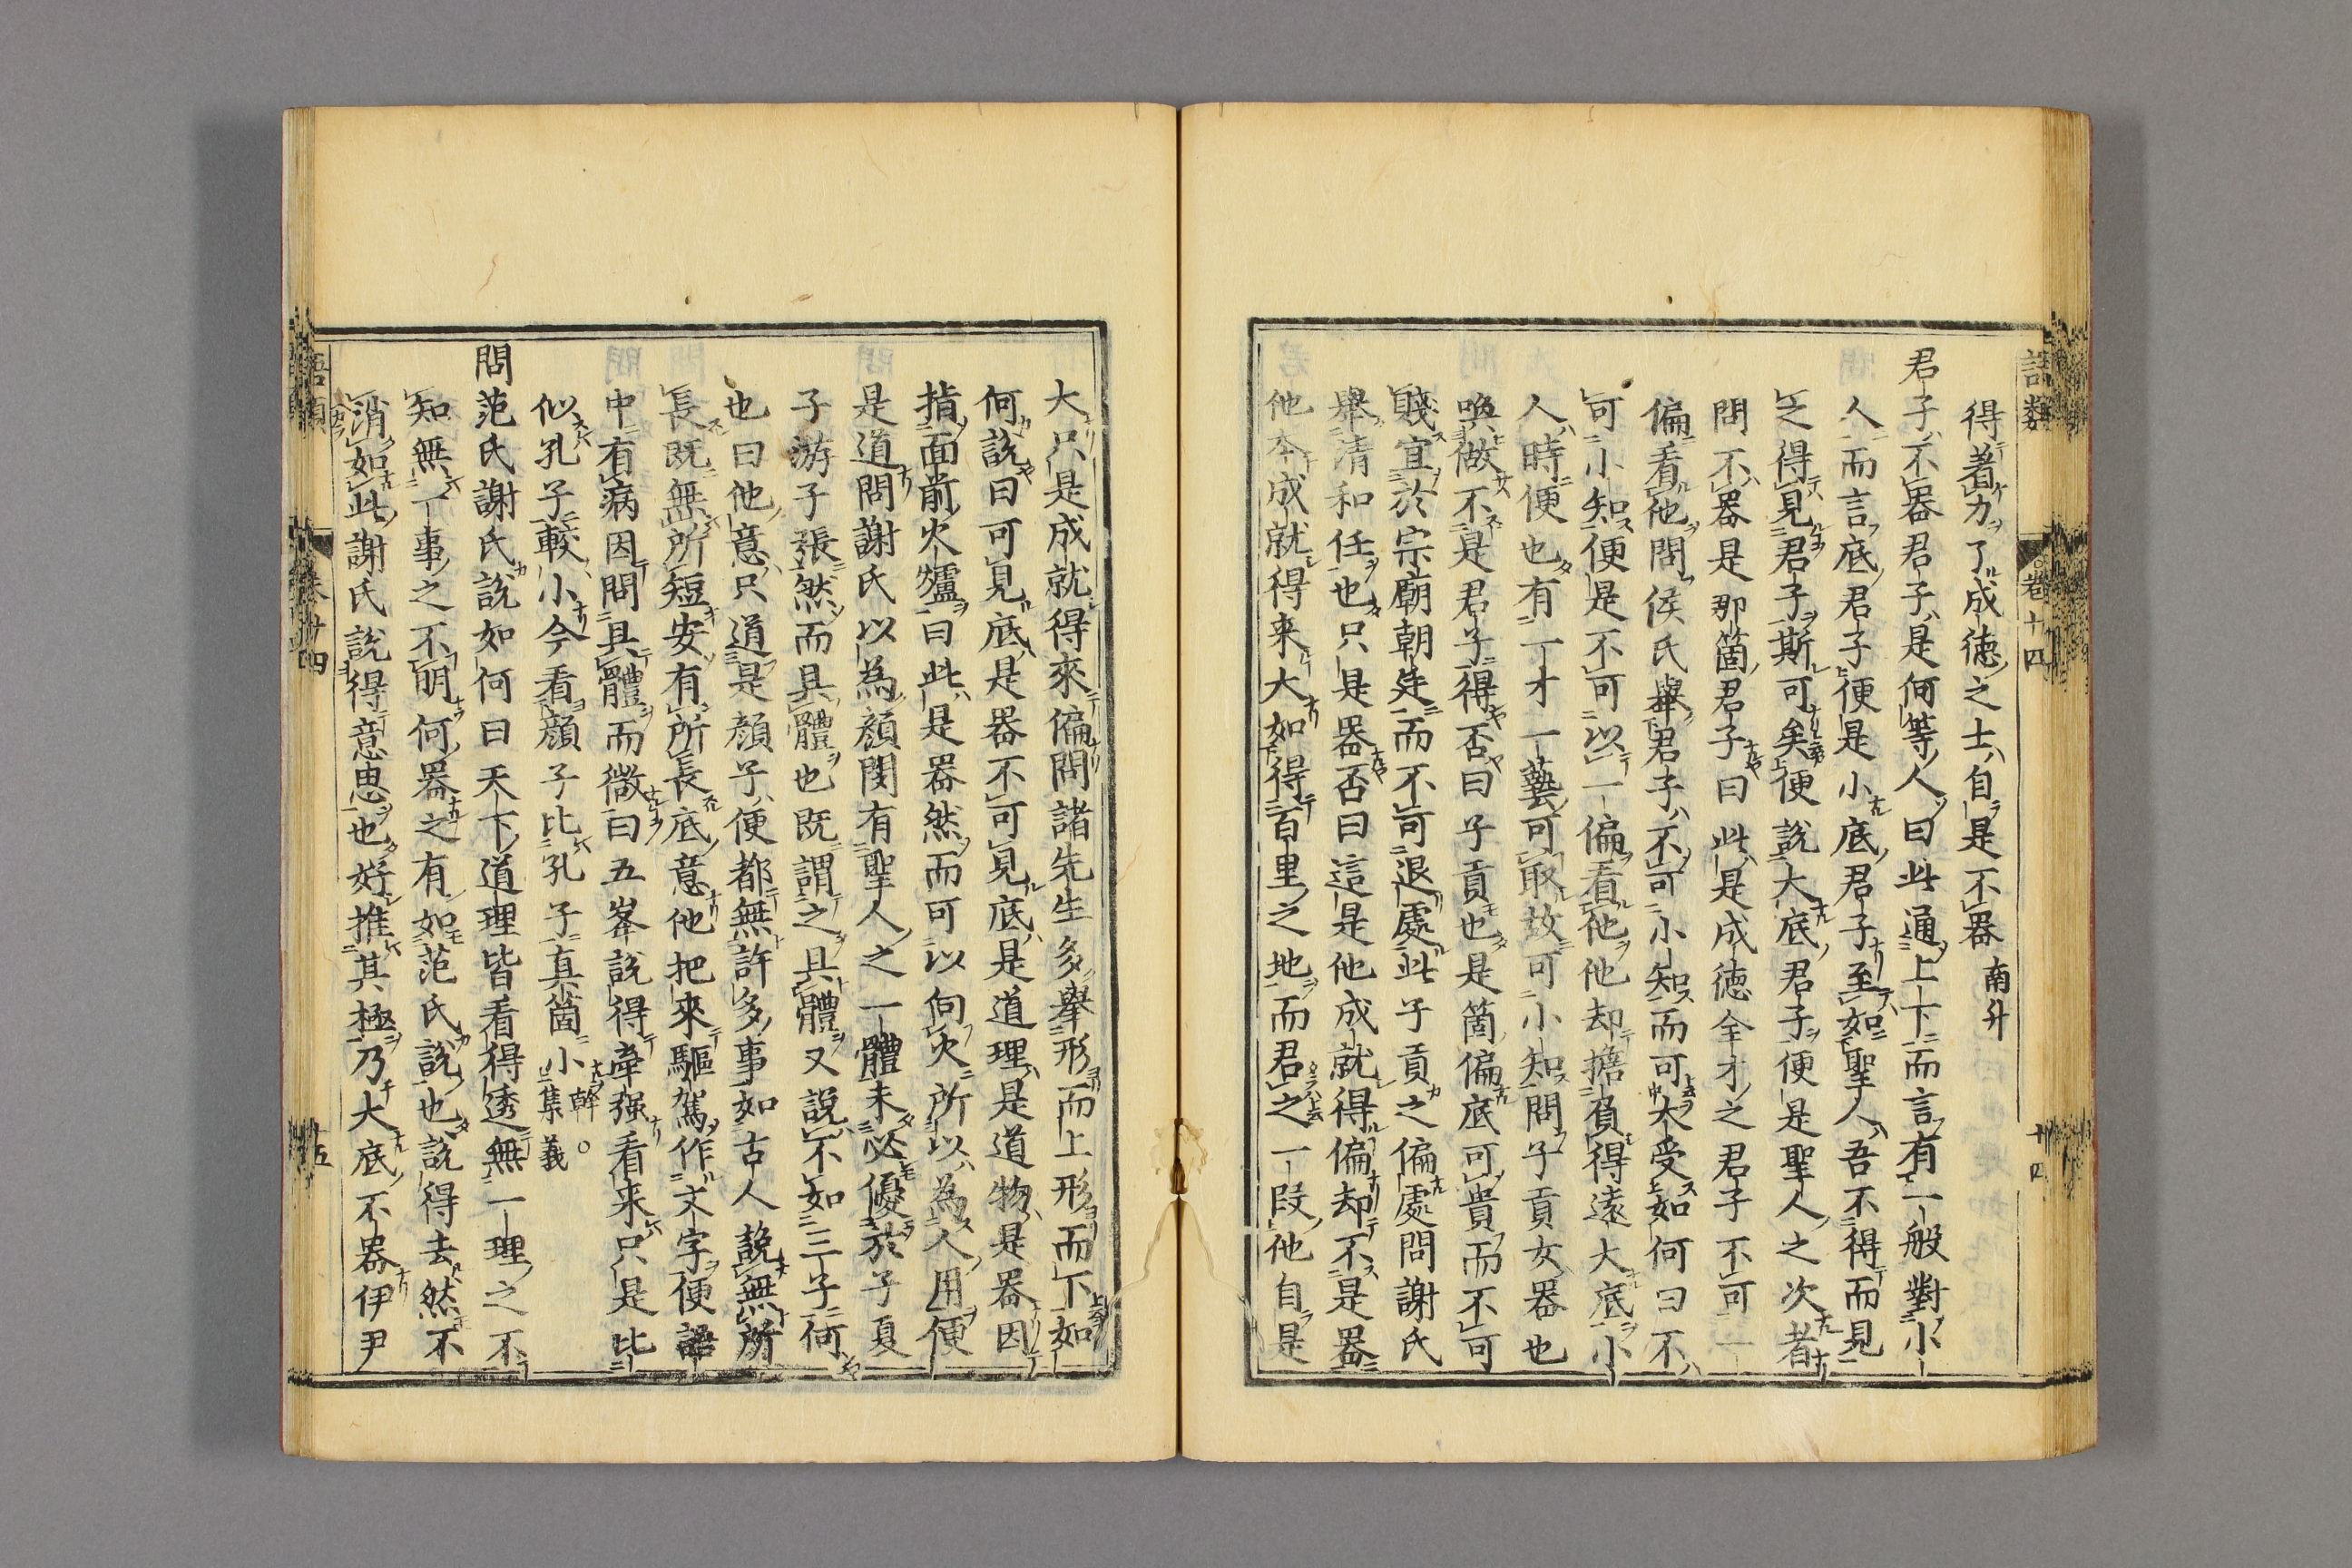 語類 卷十四 十四
得著力了成徳之士自是不器 南升
君子不器君子是何等人曰此通上下而言有一般對小
人而言底君子便是小底君子至如聖人吾不得而見
之得見君子斯可矣便說大底君子便是聖人之次者
問不器是那箇君子曰此是成徳全才之君子不可一
偏看他問侯氏舉君子不可小知而可大受如何曰不
可小知便是不可以一偏看他他却擔負得遠大底小
人時便也有一才一藝可取故可小知問子貢女器也
喚做不是君子得否曰子貢也是箇偏底可貴而不可
賤宜於宗廟朝廷而不可退處此子貢之偏處問謝氏
舉清和任也只是器否曰這是他成就得偏却不是器
他本成就得来大如得百里之地而君之一段他自是
大只是成就得來偏問諸先生多舉形而上形而下如
何說曰可見底是器不可見底是道理是道物是器因
指面前火爐曰此是器然而可以向火所以為人用便
是道問謝氏以為顔閔有聖人之一體未必優於子夏
子游子張然而具體也既謂之具體又說不如三子何
也曰他意只道是顔子便都無許多事如古人說無所
長既無所短安有所長底意他把來驅駕作文字便語
中有病因問具體而微曰五峯說得牽强看来只是比
似孔子較小今看顔子比孔子真箇小 幹○集義
問范氏謝氏說如何曰天下道理皆看得透無一理之不
知無一事之不明何器之有如范氏說也說得去然不
消如此謝氏說得意思也好推其極乃大底不器伊尹
語類 卷十四 十五